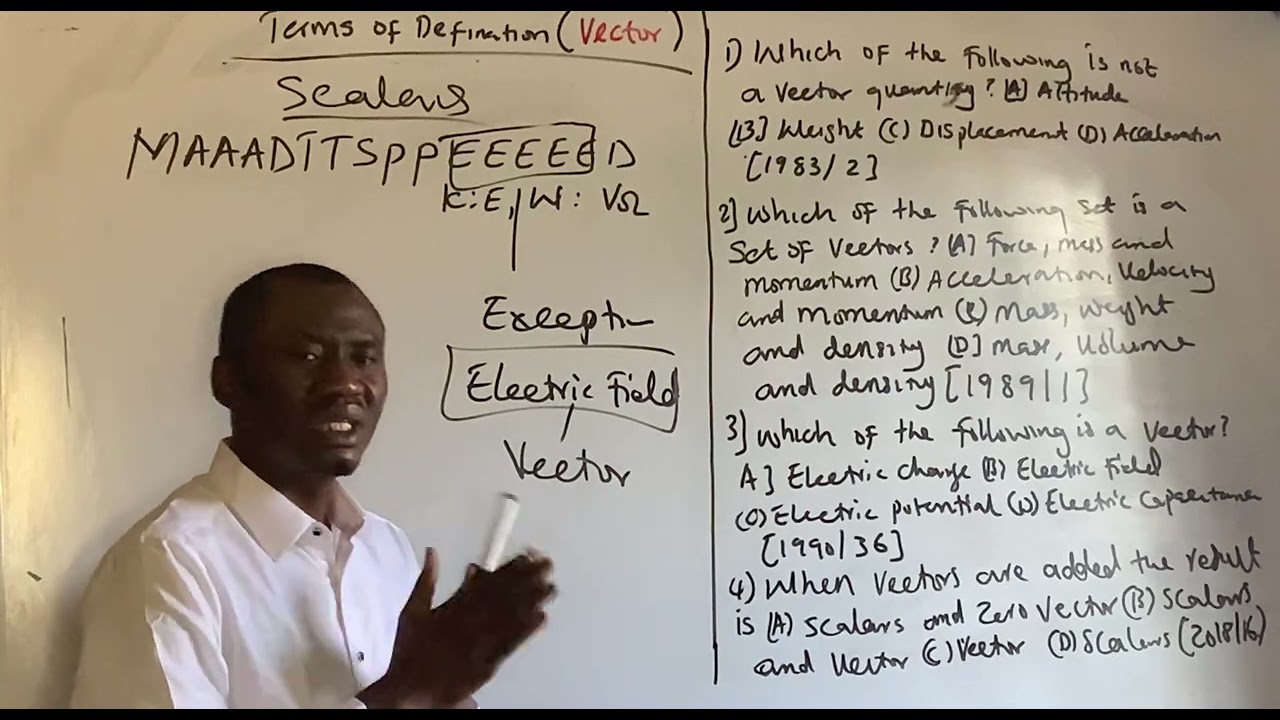 Terms of Defination (Vector)
Scalars
MAAADITSPPEEEEED
K:E, W: VΩ
Exception
Electric Field
Vector
1) Which of the following is not
a vector quantity? [A] Altitude
[B] Weight (C) Displacement (D) Acceleration
[1983/2]
2] Which of the following set is a
set of vectors? [A] Force, mass and
momentum (B) Acceleration, Velocity
and momentum (C) Mass, weight
and density [D] mass, Volume
and density [1989/1]
3] Which of the following is a vector?
A] Electric charge (B) Electric Field
(C) Electric potential (D) Electric Capacitance
[1990/36]
4) When vectors are added the result
is (A) Scalars and Zero Vector (B) Scalars
and Vector (C) Vector (D) Scalars [2018/16)